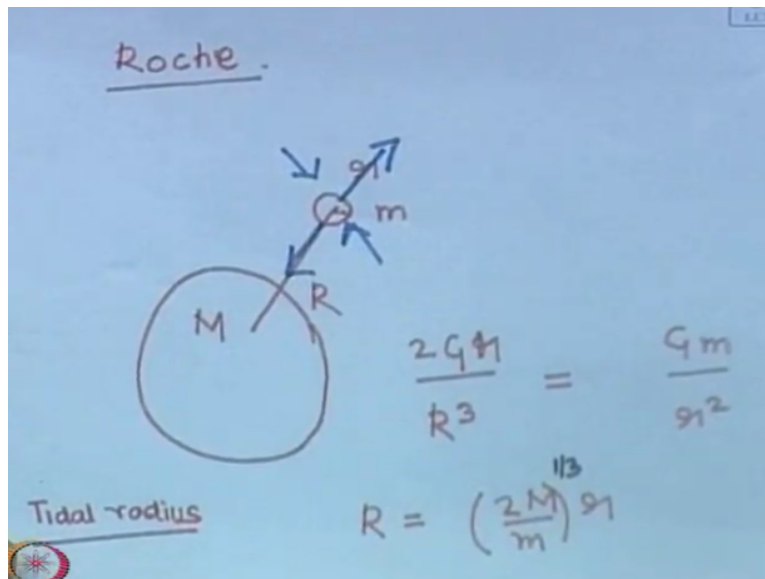 Roche.
r
m
R
M
2GM/R³ = Gm/r²
Tidal radius
R = (2M/m)^1/3 r